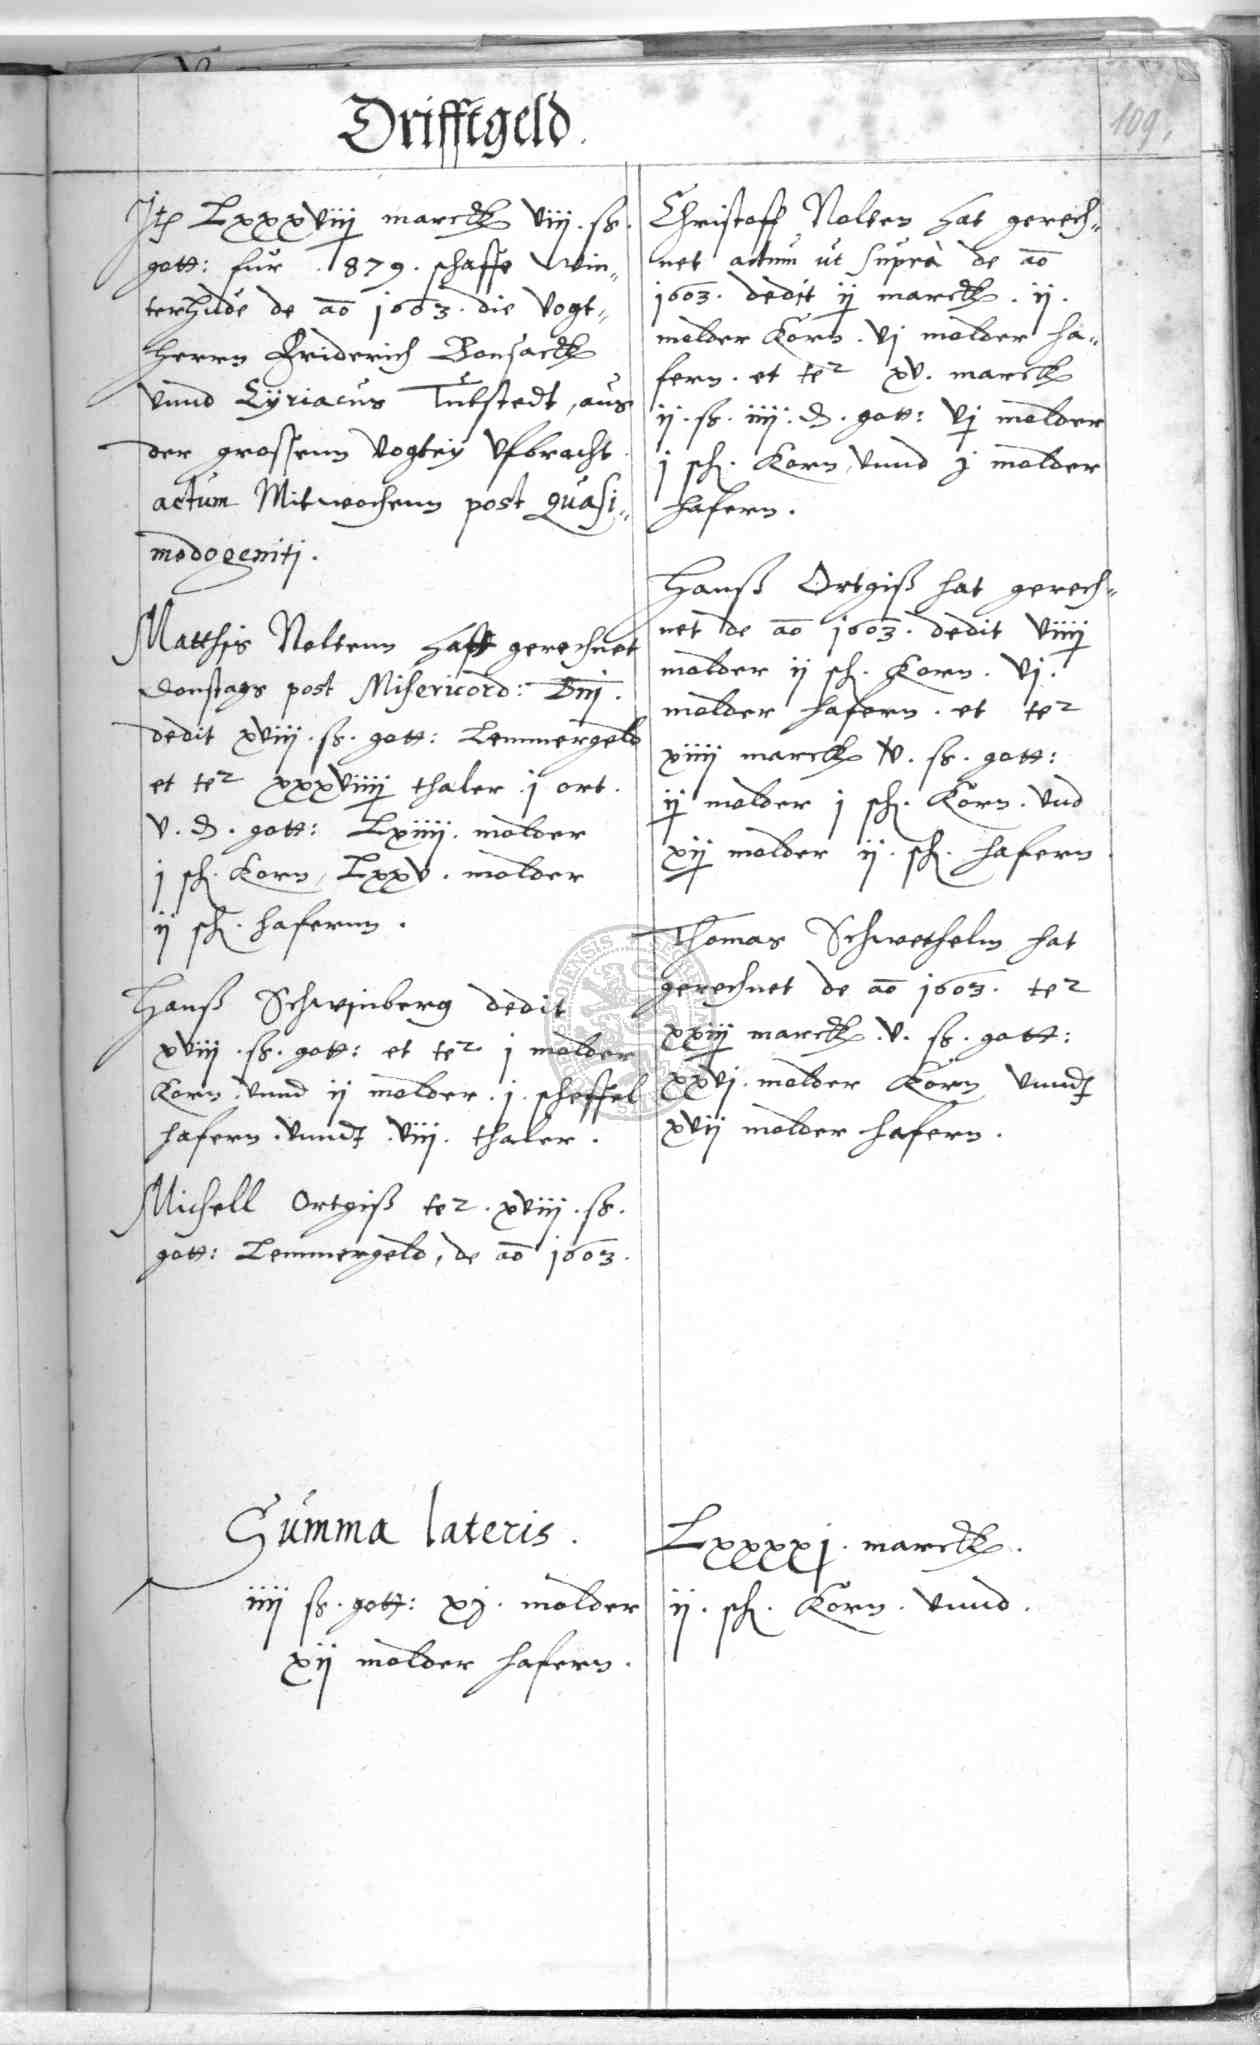 Drifftgeld.
109.
Itē Lxxxviiij marck viij. sß.
gott: für . 879. schaffe Win„
terhude de aō 1603. die Vogt„
herrn Friderich Bonsack
vnnd Cÿriacus Tutstedt, aus
der grossenn Vogteÿ vfbracht.
actum Mitwochenn post Quasi„
modogeniti.
Matthis Noltenn hatt gerechnet
Donstags post Misericord: Dnj.
dedit xviij. sß. gott: Lemmergeld
et te2 xxxviiij thaler j ort.
v. d. gott: Lxiiij. molder
j sch. Korn, Lxxv. molder
ij sch. hafernn.
Hanß Schwinberg dedit
xviij. sß. gott: et te2 j molder
Korn. vnnd ij molder. j. scheffel
hafern. vnndt viij. thaler.
Michell Ortgiß te2. xviij. sß.
gott: Lemmergeld, de aō 1603.
Christoff Nolten hat gerech„
net actum ut suprà de aō
1603. dedit ij marck. ij.
molder Korn. vj molder ha„
fern. et te2 xv. marck
ij. sß. iiij. d. gott: vj molder
j sch. Korn, vnnd j molder
hafern.
Hanß Ortgiß hat gerech„
net de aō 1603. dedit viiij
molder ij sch. Korn. vj.
molder hafern. et te2
xiiij marck v. sß. gott:
ij molder j sch. Korn. vnd
xij molder ij. sch. hafern.
Thomas Schwethelm hat
gerechnet de aō 1603. te2
xxiij marck. v. sß. gott:
xxvj. molder Korn vnndt
xvij molder hafern.
Summa lateris. Lxxxxj. marck.
iiij sß. gott: xj. molder ij. sch. Korn. vnnd.
xij molder hafern.